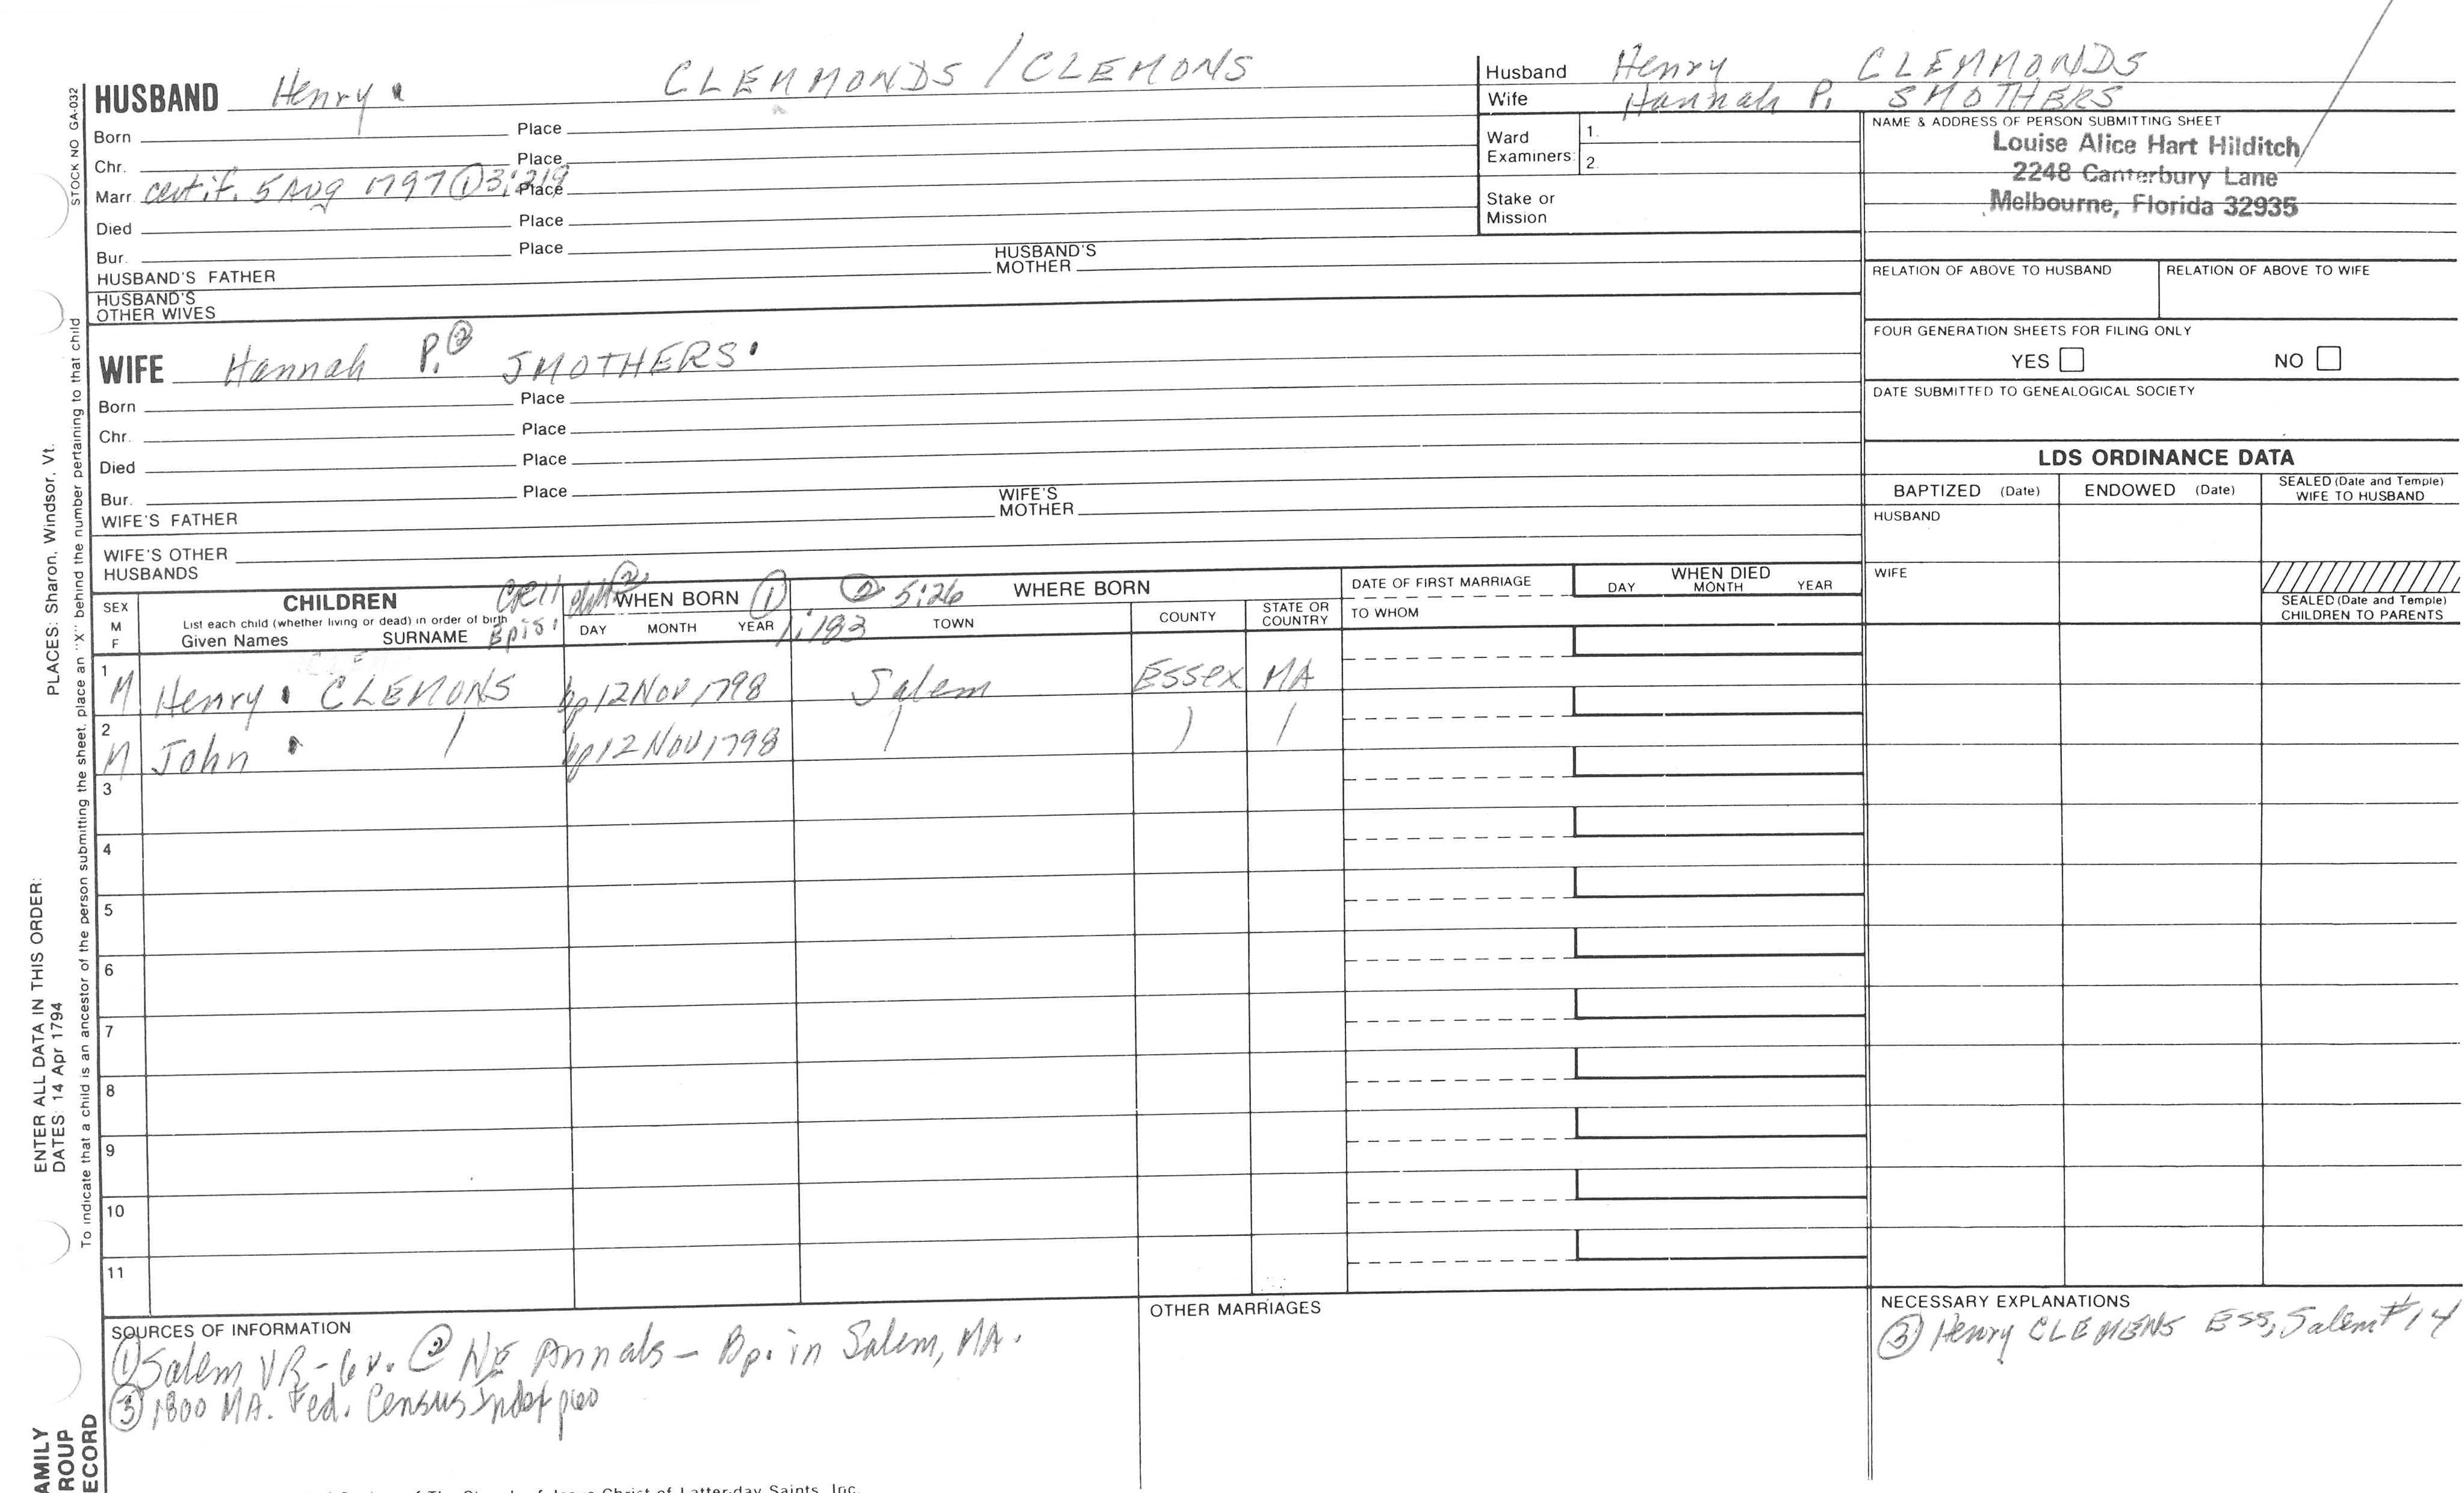 HUSBAND Henry CLEMMONDS / CLEMONS
Born Place
Chr. Place
Marr. certif. 5 Aug 1797 ① 3:219 Place
Died Place
Bur. Place
HUSBAND'S FATHER HUSBAND'S MOTHER
HUSBAND'S OTHER WIVES
Husband Henry CLEMMONDS
Wife Hannah P. SMOTHERS
Ward Examiners: 1.
2.
Stake or Mission
NAME & ADDRESS OF PERSON SUBMITTING SHEET
Louise Alice Hart Hilditch
2248 Canterbury Lane
Melbourne, Florida 32935
RELATION OF ABOVE TO HUSBAND RELATION OF ABOVE TO WIFE
FOUR GENERATION SHEETS FOR FILING ONLY
YES NO
DATE SUBMITTED TO GENEALOGICAL SOCIETY
WIFE Hannah P. ② SMOTHERS
Born Place
Chr. Place
Died Place
Bur. Place
WIFE'S FATHER WIFE'S MOTHER
WIFE'S OTHER HUSBANDS
LDS ORDINANCE DATA
BAPTIZED (Date) ENDOWED (Date) SEALED (Date and Temple) WIFE TO HUSBAND
HUSBAND
WIFE
SEALED (Date and Temple) CHILDREN TO PARENTS
SEX M F
CHILDREN
List each child (whether living or dead) in order of birth
Given Names SURNAME
② WHEN BORN ①
DAY MONTH YEAR 1:183
② 5:26 WHERE BORN
TOWN COUNTY STATE OR COUNTRY
DATE OF FIRST MARRIAGE
TO WHOM
WHEN DIED
DAY MONTH YEAR
1 M Henry CLEMONS bp 12 Nov 1798 Salem Essex MA
2 M John / bp 12 Nov 1798 / / /
3
4
5
6
7
8
9
10
11
SOURCES OF INFORMATION
① Salem VR - 6v. ② NE Annals - Bp. in Salem, MA.
③ 1800 MA. Fed. Census
OTHER MARRIAGES
NECESSARY EXPLANATIONS
③ Henry CLEMENS Ess, Salem #14
STOCK NO GA-032
PLACES: Sharon, Windsor, Vt.
ENTER ALL DATA IN THIS ORDER:
DATES: 14 Apr 1794
To indicate that a child is an ancestor of the person submitting the sheet, place an "X" behind the number pertaining to that child
AMILY
ROUP
ECORD
Christ of Latter-day Saints, Inc.